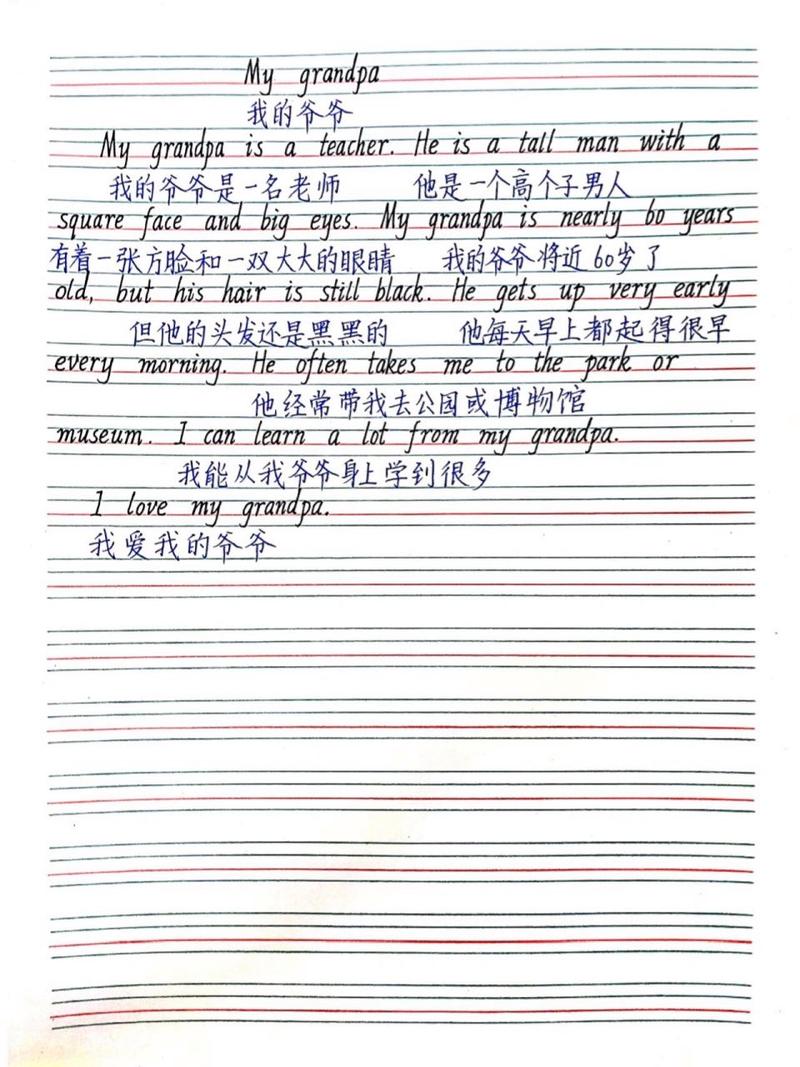 My grandpa
我的爷爷
My grandpa is a teacher. He is a tall man with a
我的爷爷是一名老师 他是一个高个子男人
square face and big eyes. My grandpa is nearly 60 years
有着一张方脸和一双大大的眼睛 我的爷爷将近60岁了
old, but his hair is still black. He gets up very early
但他的头发还是黑黑的 他每天早上都起得很早
every morning. He often takes me to the park or
他经常带我去公园或博物馆
museum. I can learn a lot from my grandpa.
我能从我爷爷身上学到很多
I love my grandpa.
我爱我的爷爷